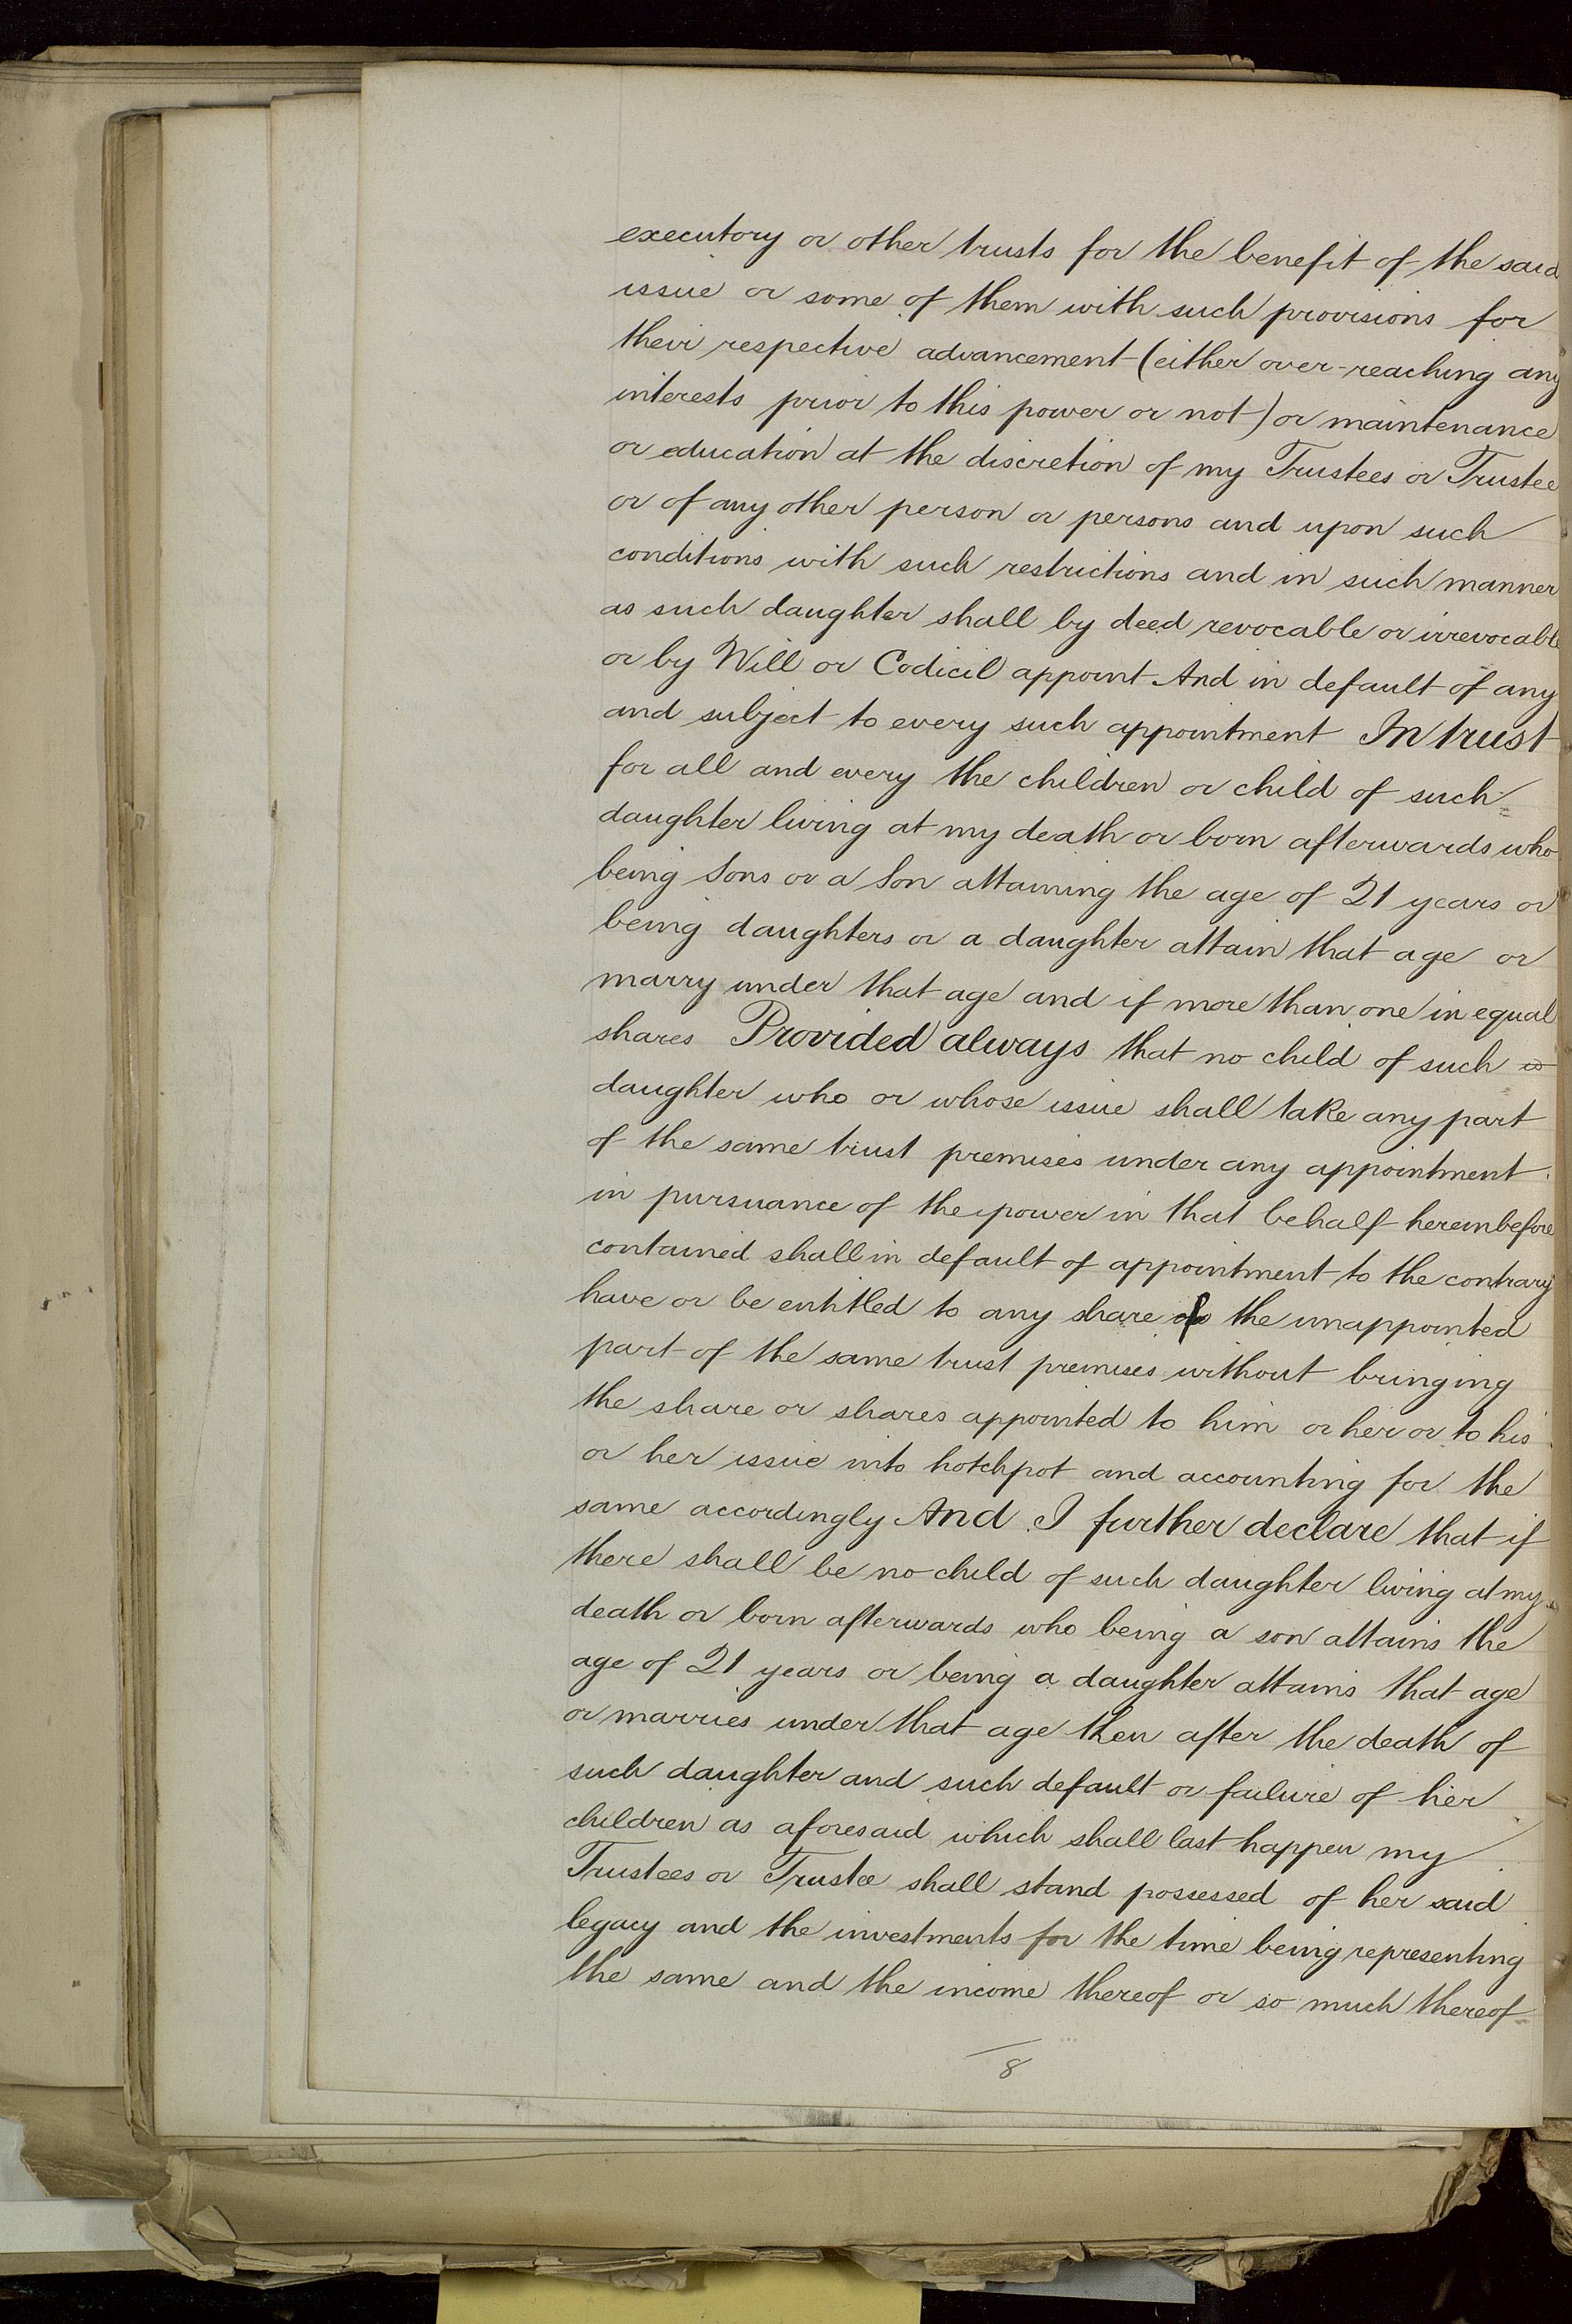 executory or other trusts for the benefit of the said
issue or some of them with such provisions for
their respective advancement (either over-reaching any
interests prior to this power or not) or maintenance
or education at the discretion of my Trustees or Trustee
or of any other person or persons and upon such
conditions with such restrictions and in such manner
as such daughter shall by deed revocable or irrevocable
or by Will or Codicil appoint And in default of any
and subject to every such appointment In trust
for all and every the children or child of such
daughter living at my death or born afterwards who
being Sons or a Son attaining the age of 21 years or
being daughters or a daughter attain that age or
marry under that age and if more than one in equal
shares Provided always that no child of such
daughter who or whose issue shall take any part
of the same trust premises under any appointment
in pursuance of the power in that behalf hereinbefore
contained shall in default of appointment to the contrary
have or be entitled to any share of the unappointed
part of the same trust premises without bringing
the share or shares appointed to him or her or to his
or her issue into hotchpot and accounting for the
same accordingly And I further declare that if
there shall be no child of such daughter living at my
death or born afterwards who being a son attains the
age of 21 years or being a daughter attains that age
or marries under that age then after the death of
such daughter and such default or failure of her
children as aforesaid which shall last happen my
Trustees or Trustee shall stand possessed of her said
legacy and the investments for the time being representing
the same and the income thereof or so much thereof
8